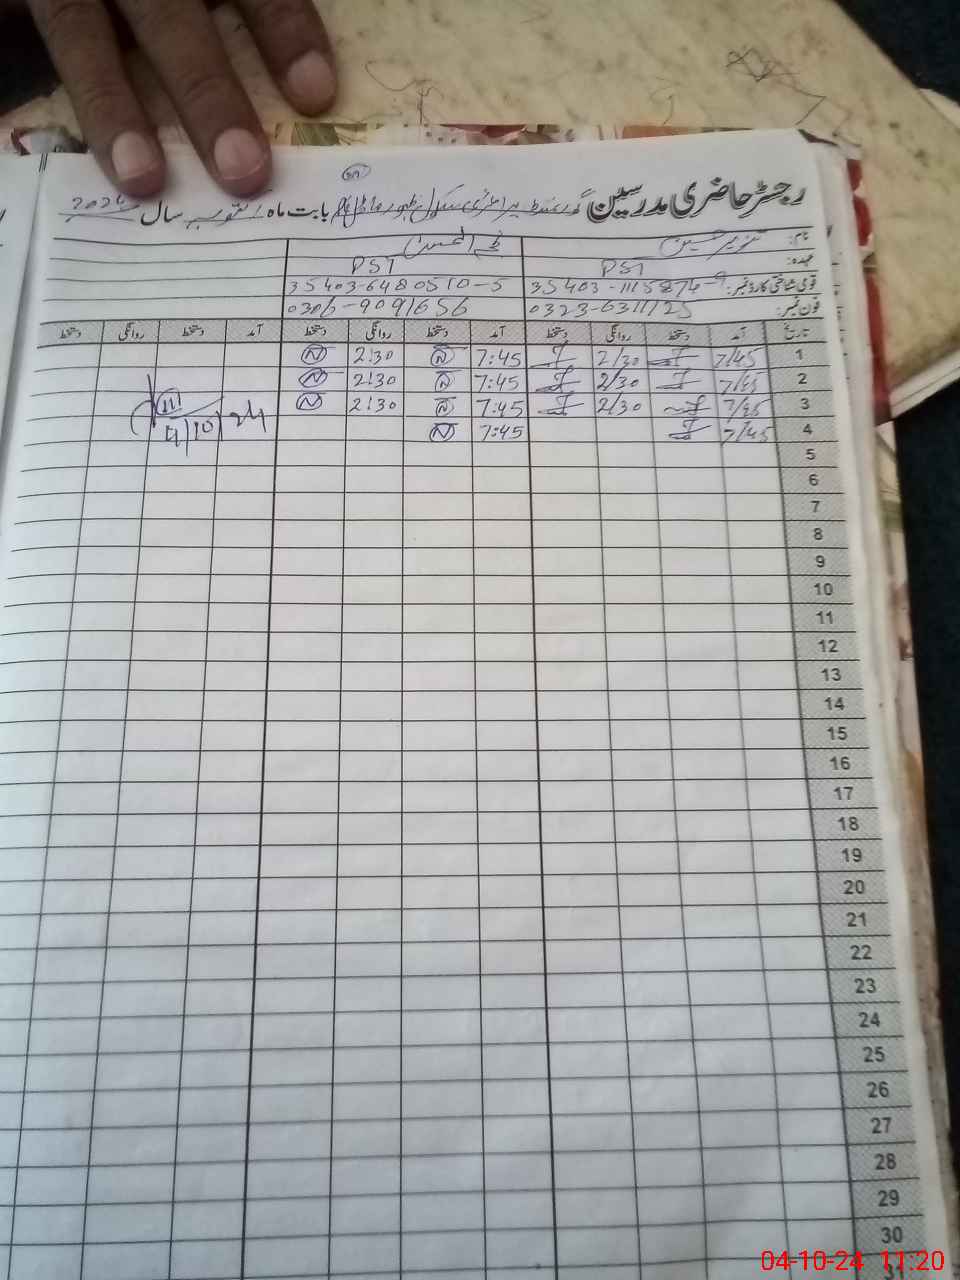 رجسٹر حاضری مدرسین گورنمنٹ پرائمری سکول بابت ماہ اکتوبر سال 2024
نام: تنویر حسین
عہدہ: PST PST
قومی شناختی کارڈ نمبر: 35403-1115874-9 35403-6480510-5
فون نمبر: 0323-6311125 0306-9091656
تاریخ آمد دستخط روانگی دستخط آمد دستخط روانگی دستخط آمد دستخط روانگی دستخط
1 7/45 2/30 7:45 2:30
2 7/45 2/30 7:45 2:30
3 7/45 2/30 7:45 2:30
4 7/45 7:45
4/10/24
5
6
7
8
9
10
11
12
13
14
15
16
17
18
19
20
21
22
23
24
25
26
27
28
29
30
31
04-10-24 11:20